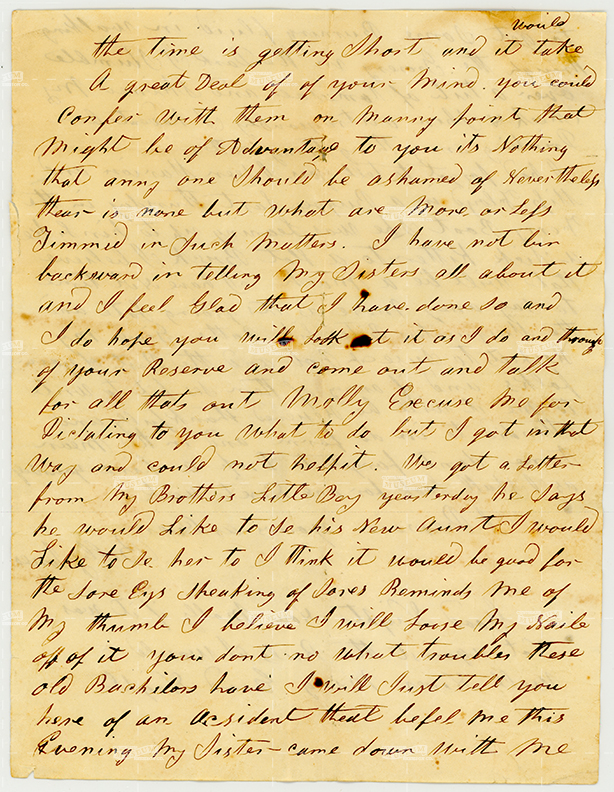 would
the time is getting Short and it take
A great Deal of of your Mind. you could
Confer With them on Manny point that
Might be of Advantage to you its Nothing
that anny one Should be ashamed of Nevertheless
thear is none but what are More or Less
Timmid in Such Matters. I have not bin
backward in telling My Sisters all about it
and I feel Glad that I have done so and
I do hope you will Look at it as I do and through
of your Reserve and come out and talk
for all thats out Molly Excuse Me for
Dictating to you What to do but I got in that
Way and could not helpit. We got a Letter
from My Brothers Little Boy yeasterday he Says
he would Like to Se his New Aunt I would
Like to Se her to I think it would be good for
the Sore Eys Sheaking of Sores Reminds Me of
My thumb I believe I will Loose My Naile
off of it you dont no what troubles these
old Bachilors have I will Just tell you
here of an Accident that befel Me this
Evening My Sister came down With Me